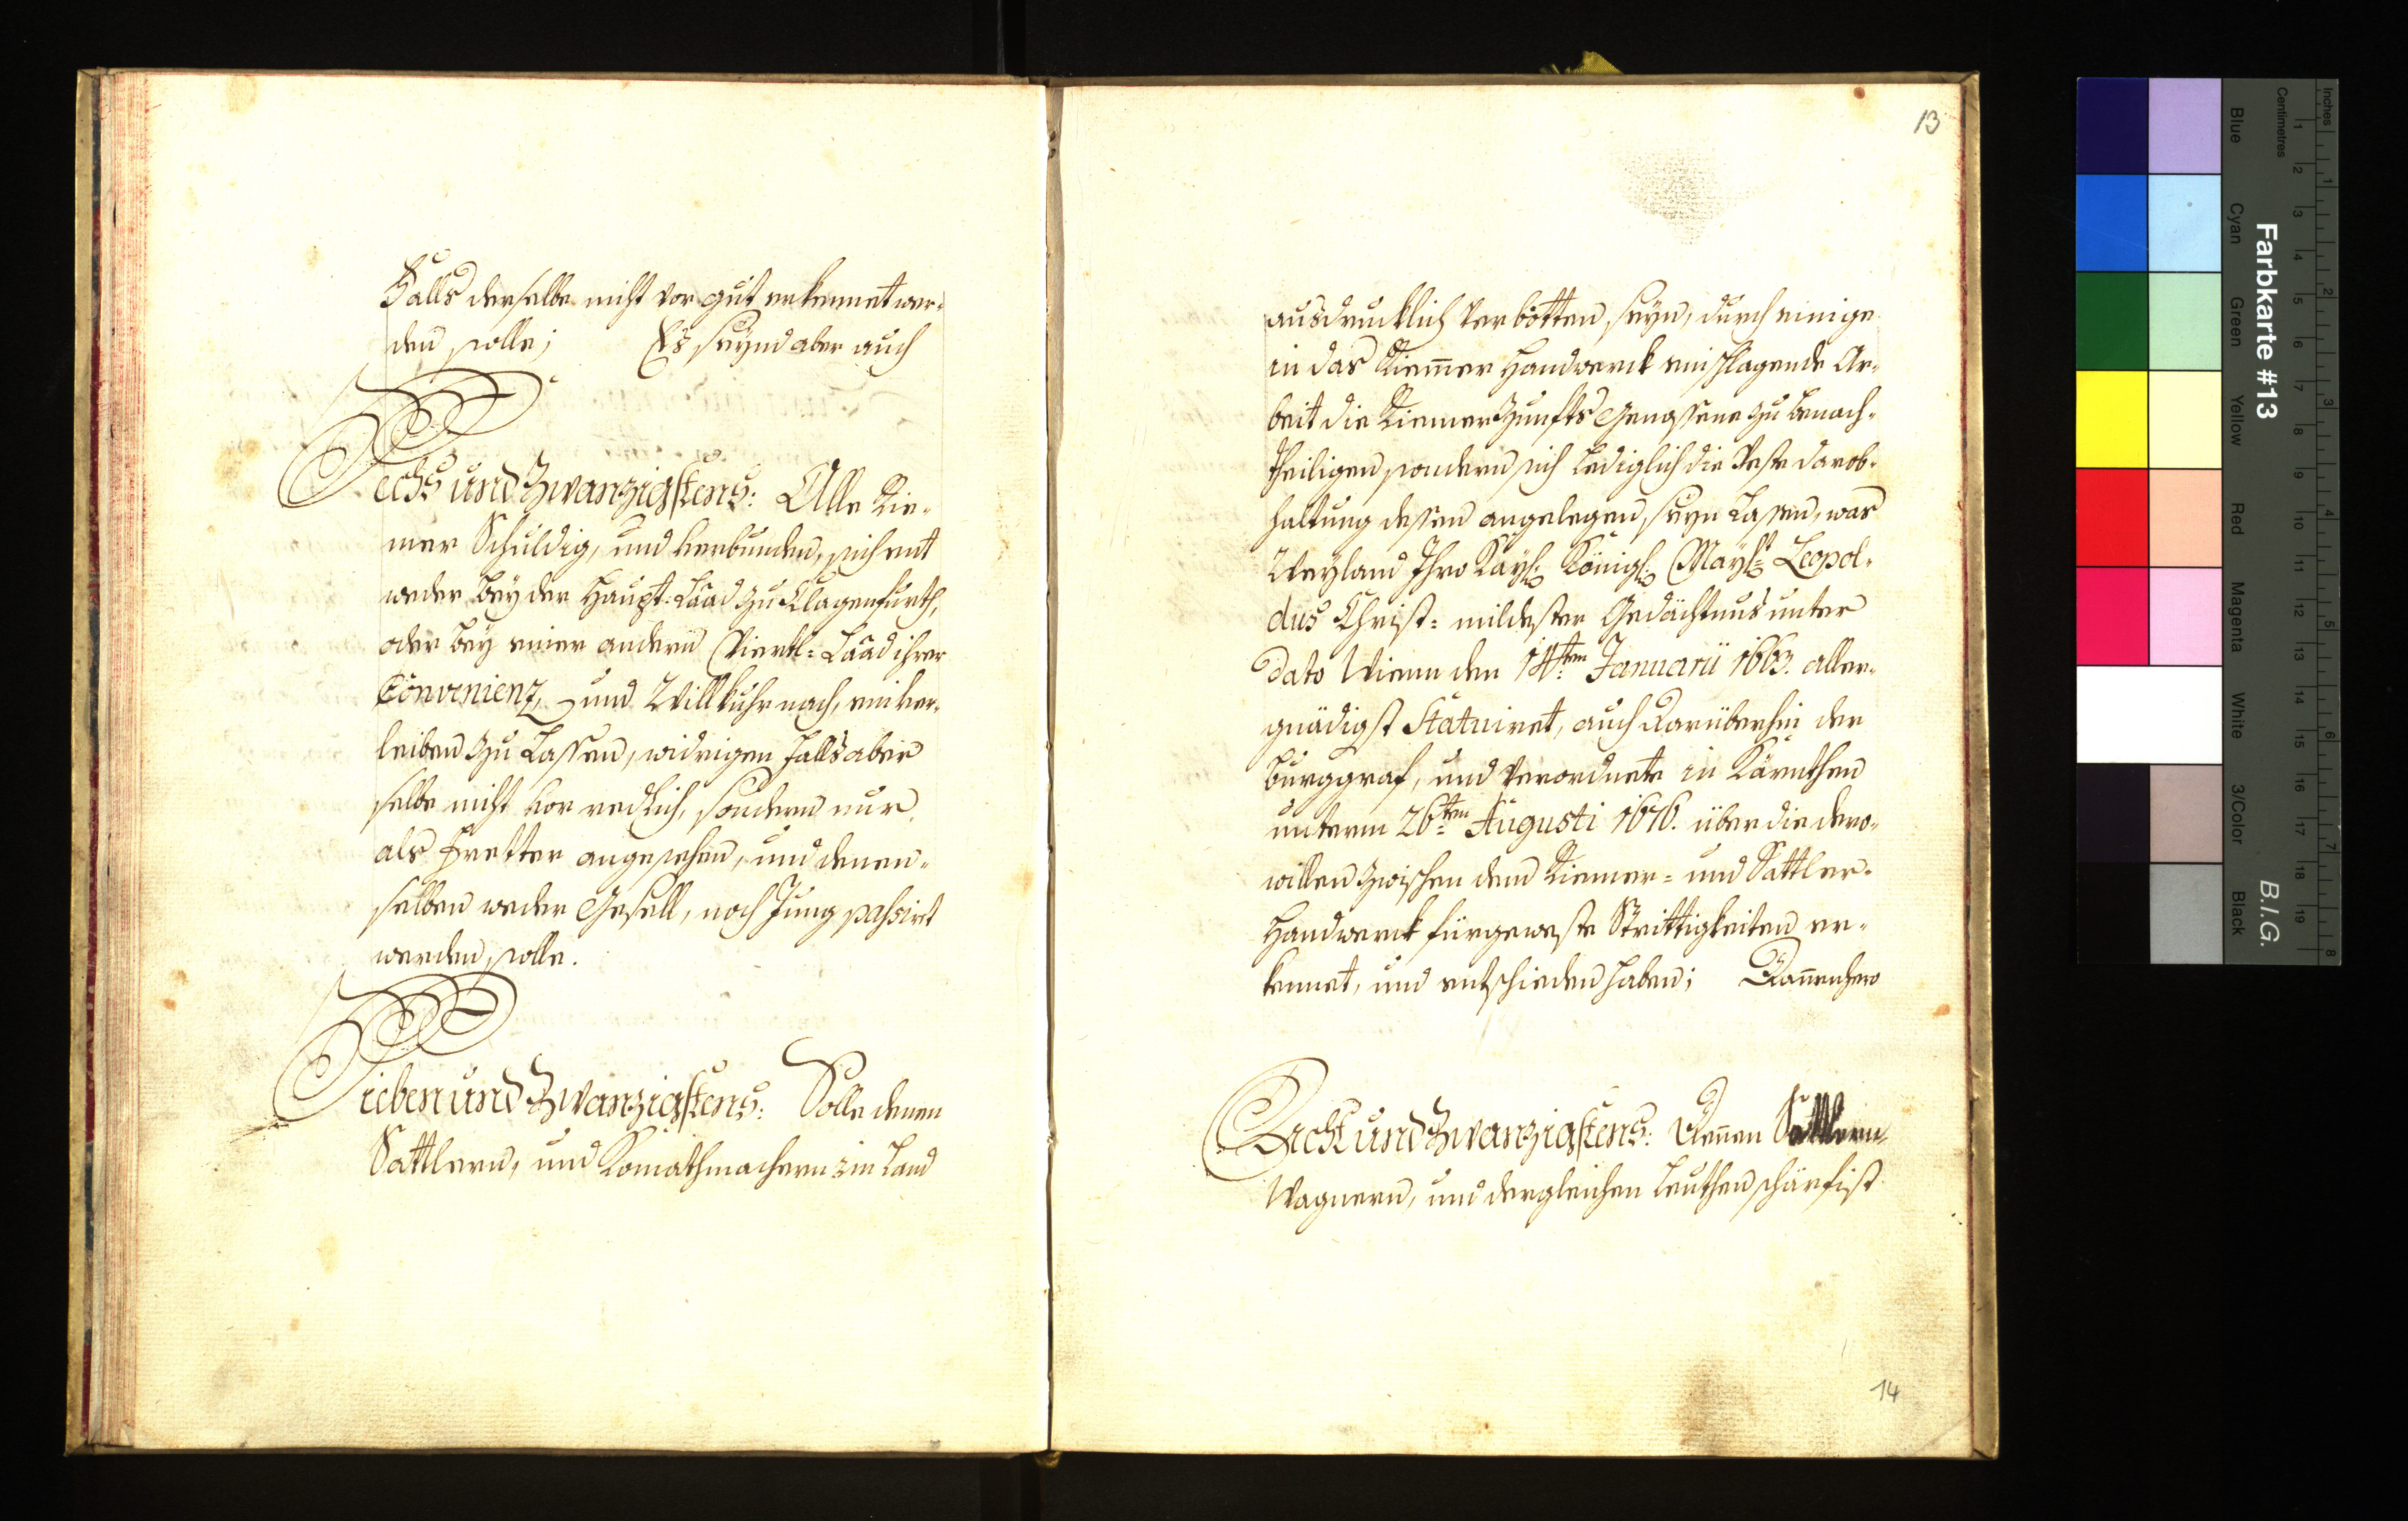 Falls derselbe nicht vor gut erkennet wer-
den solle; Es seynd aber auch
Sechs und Zwanzigstens: Alle Rie-
mer Schuldig, und verbunden, sich ent
weder bey der Haupt-Laad zu Clagenfurth,
oder bey einer andern Viertl-Laad ihrer
Convenienz, und Willkuhr nach, einver-
leiben zu Lassen, widrigen falls aber
selbe nicht vor redlich, sondern nur
als Fretter angesehen, und denen-
selben weder Gesell, noch Jung passiert
werden solle.
Sieben und Zwanzigstens: Solle denen
Sattlern, und Komathmachern im Land
13
ausdrucklich Verbotten seyn, durch einige
in das Riemer Handwerck einschlagende Ar-
beit die Riemer Zunffts Genossene zu benach-
theiligen, sondern sich Lediglich die Veste darob-
haltung dessen angelegen seyn Lassen, was
Weyland Ihro Kayl: Königl: Mayst: Leopol-
dus Christ-mildester Gedächtnus unter
Dato Wienn den 14ten Januarii 1663. aller-
gnädigst Statuiret, auch darüberhin der
Burggraf, und Verordnete in Kärnthen
unterm 26ten Augusti 1676. über die dero-
willen zwischen dem Riemer- und Sattler-
Handwerck fürgeweste Strittigkeiten er-
kennet, und entschieden haben; Dannenhero
Acht und Zwanzigstens: Denen Sattlern
Wagnern, und dergleichen Leuthen schärfist
14
Farbkarte #13
B.I.G.
Inches
Centimetres
Blue
Cyan
Green
Yellow
Red
Magenta
White
3/Color
Black